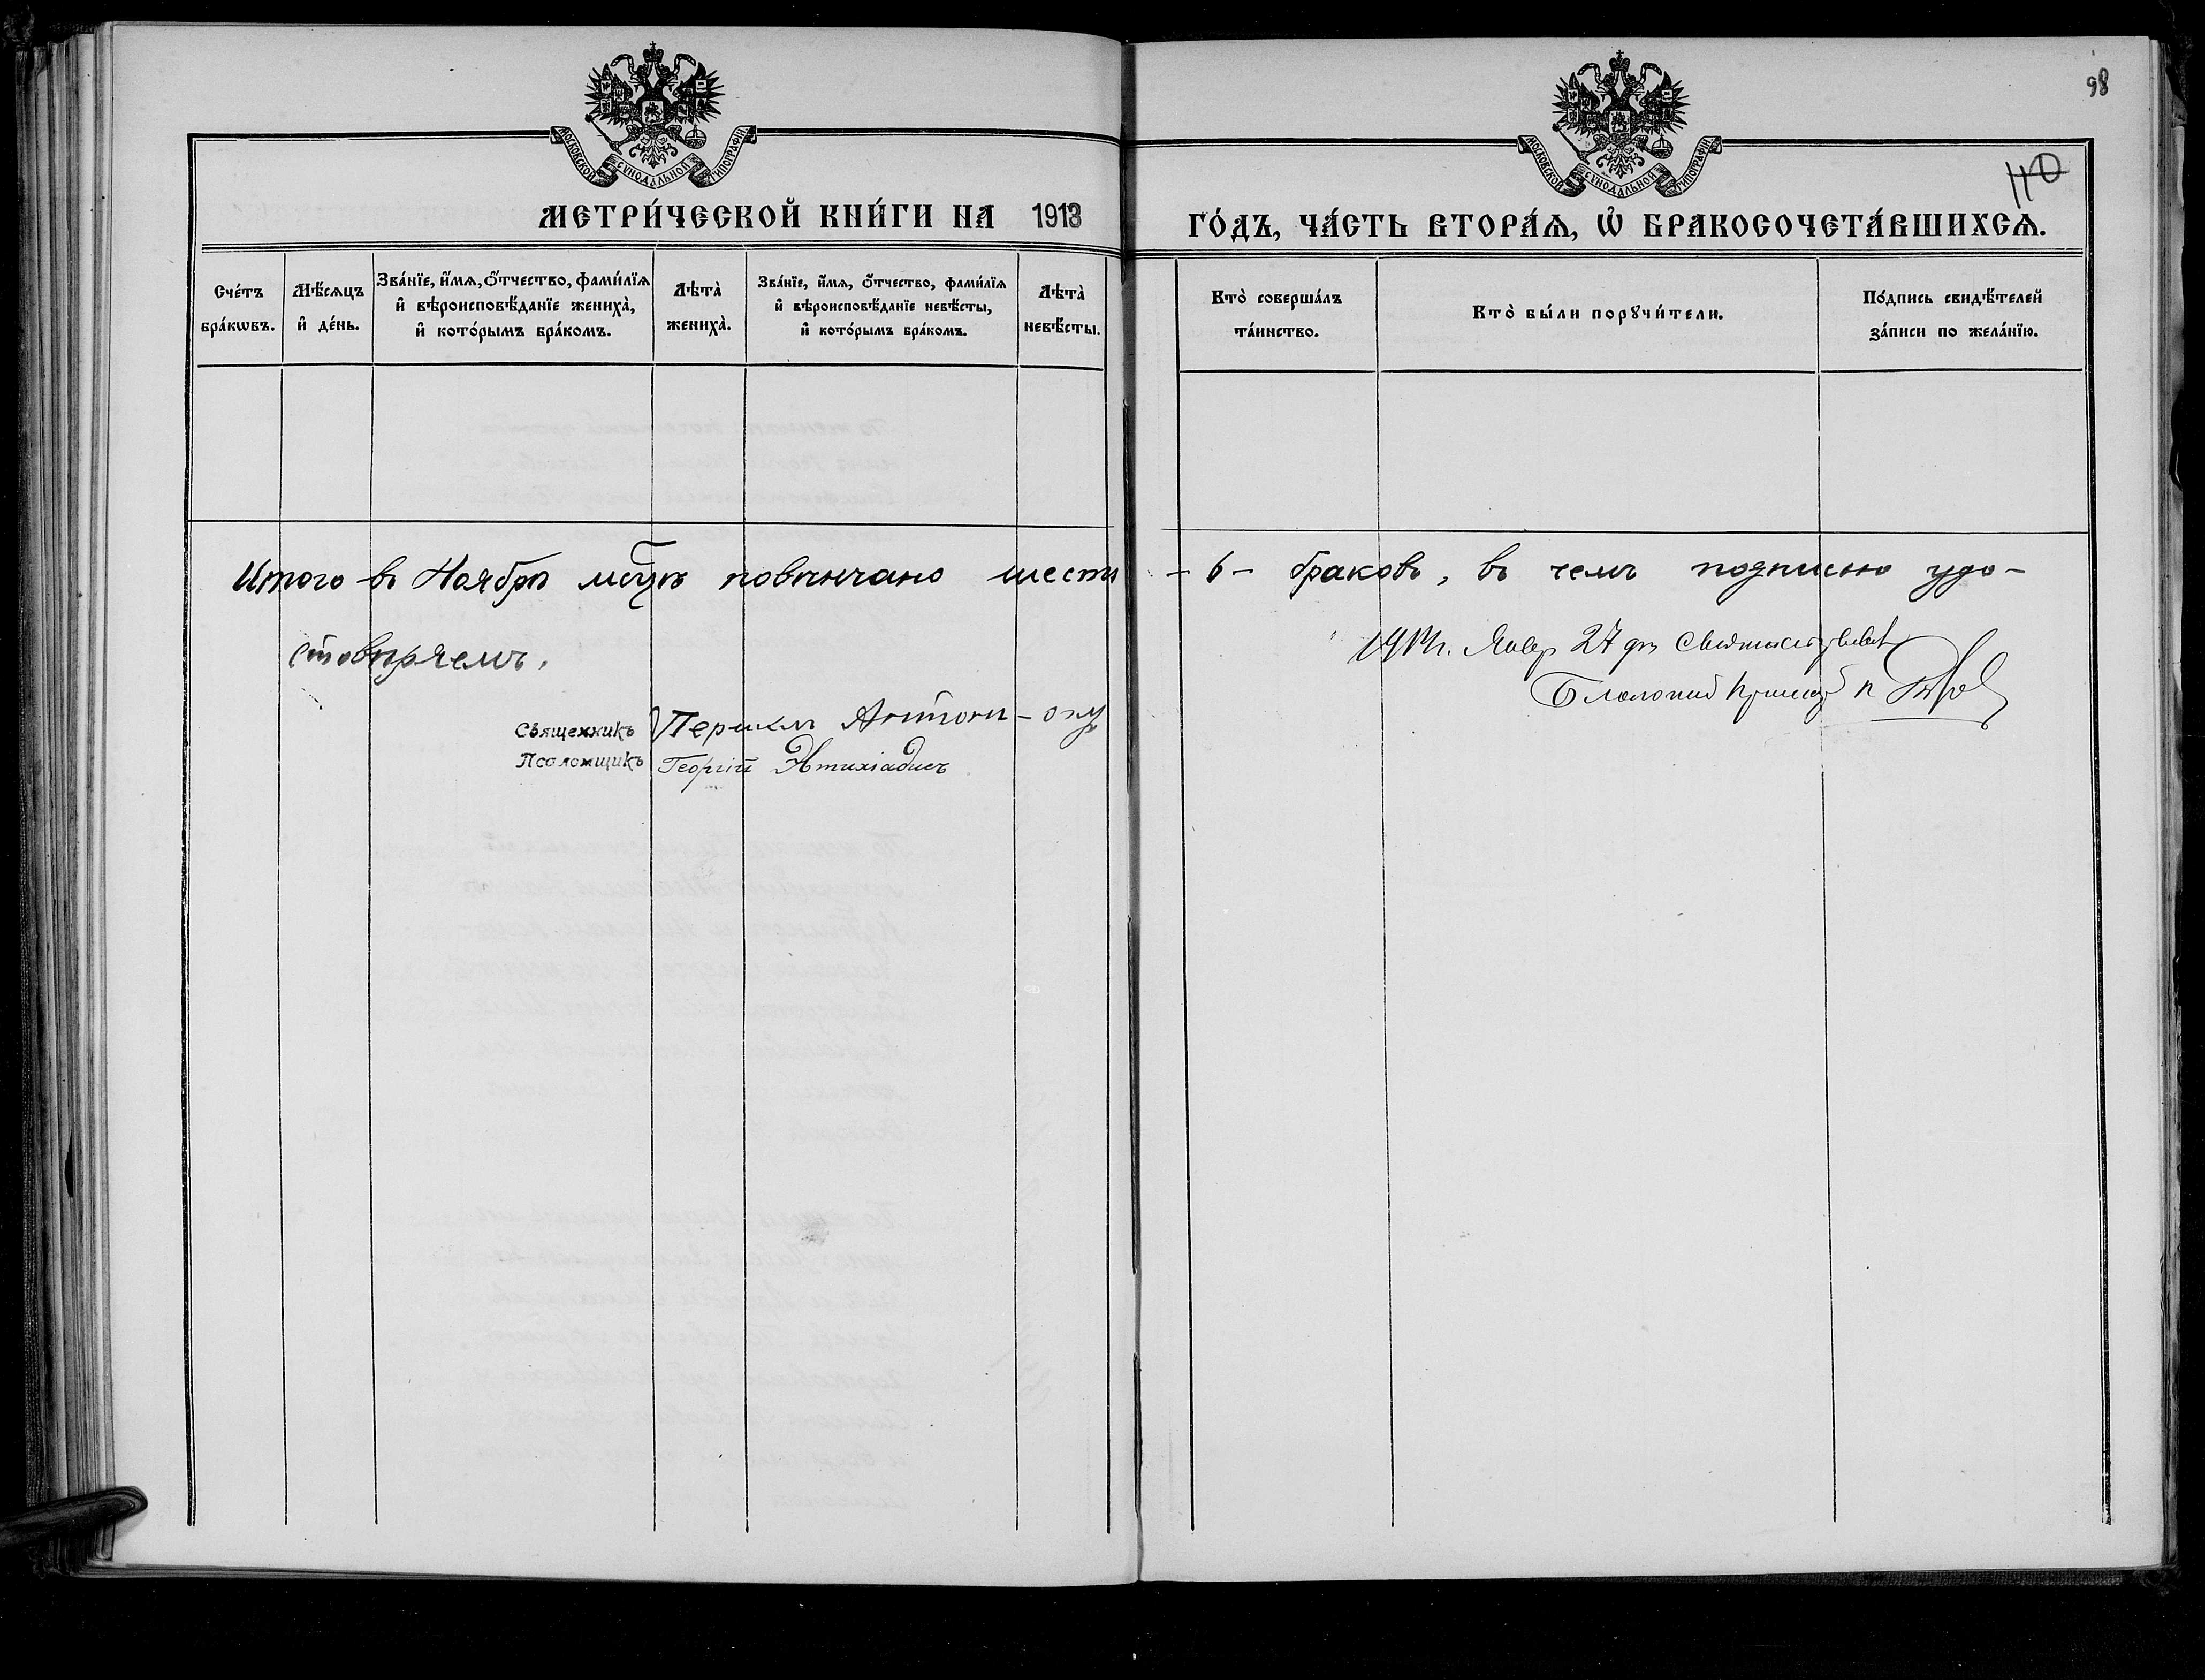 98
110
МОСКОВСКОЙ СУНОДАЛЬНОЙ ТИПОГРАФІИ
МОСКОВСКОЙ СУНОДАЛЬНОЙ ТИПОГРАФІИ
МЕТРИ́ЧЕСКОЙ КНИ́ГИ НА 1913 ГО́ДЪ, ЧА́СТЬ ВТОРА́Ѧ, Ѽ БРАКОСОЧЕТА́ВШИХСѦ.
Сче́тъ
бра́кѡвъ.
Мѣ́сѧцъ
и҆ де́нь.
Зва́нїе, и҆́мѧ, ѻ҆́тчество, фами́лїѧ
и҆ вѣроисповѣ́данїе жениха̀,
и҆ кото́рымъ бра́комъ.
Лѣта̀
жениха̀.
Зва́нїе, и҆́мѧ, ѻ҆́тчество, фами́лїѧ
и҆ вѣроисповѣ́данїе невѣ́сты,
и҆ кото́рымъ бра́комъ.
Лѣта̀
невѣ́сты.
Кто̀ соверша́лъ
та́инство.
Кто̀ бы́ли порꙋчи́тели.
По́дпись свидѣ́телей
за́писи по жела́нїю.
Итого въ Ноябрѣ мѣцѣ повѣнчано шесть - 6 - браковъ, въ чемъ подписью удо-
стовѣряемъ.
1914 г. Янвр 27 дня
Священникъ Периклъ Антони-оху
Псаломщикъ Георгій